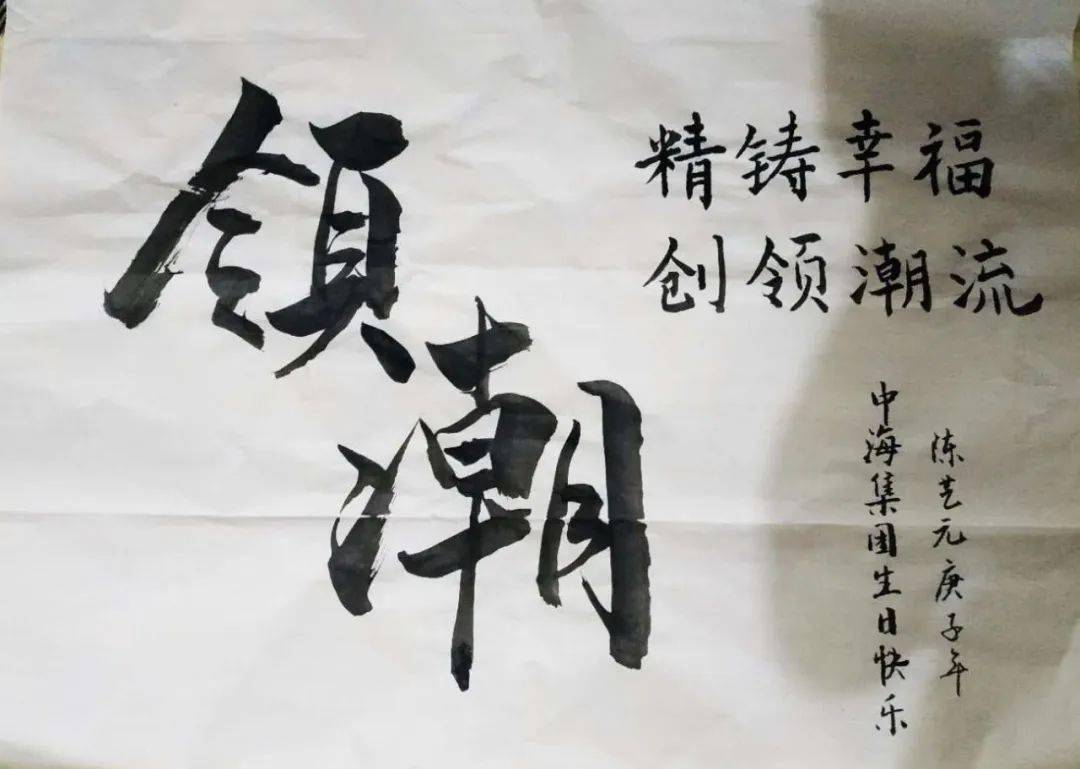 領潮
精铸幸福
创领潮流
陈艺元庚子年
中海集团生日快乐